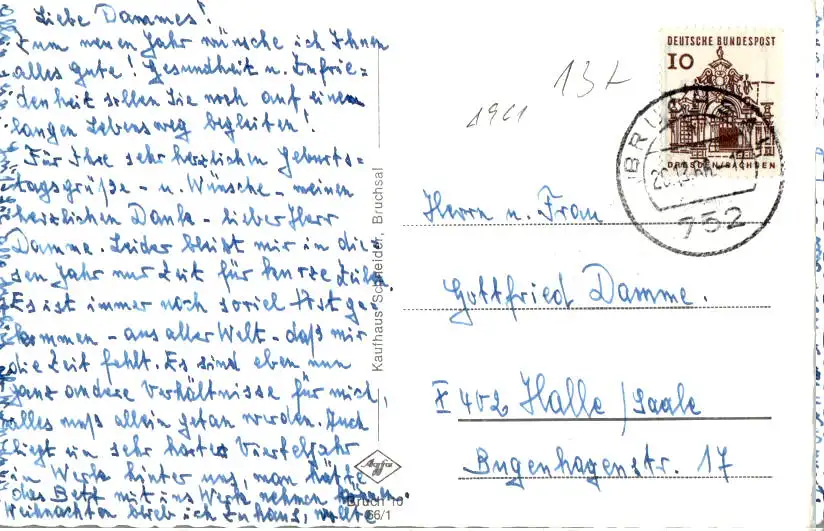 Liebe Dammes!
Zum neuen Jahr wünsche ich Ihnen
alles Gute! Gesundheit u. Zufrie-
denheit sollen Sie noch auf einem
langen Lebensweg begleiten!
Für Ihre sehr herzlichen Geburts-
tagsgrüße - u. Wünsche - meinen
herzlichen Dank - lieber Herr
Damme. Leider bleibt mir in die-
sen Jahr nur Zeit für kurze Zeilen.
Es ist immer noch soviel Post ge-
kommen - aus aller Welt - daß mir
die Zeit fehlt. Es sind eben nun
ganz andere Verhältnisse für mich,
alles muß allein getan werden. Auch
liegt ein sehr hartes Vierteljahr
im Werk hinter uns, man hätte
das Bett mit ins Werk nehmen
Weihnachten blieb ich zu Haus,
Kaufhaus Schneider, Bruchsal
Agfa
Bruch 10
66/1
13
DEUTSCHE BUNDESPOST
10
DRESDEN/SACHSEN
752
Herrn u. Frau
Gottfried Damme.
X 402 Halle/Saale
Bugenhagenstr. 17